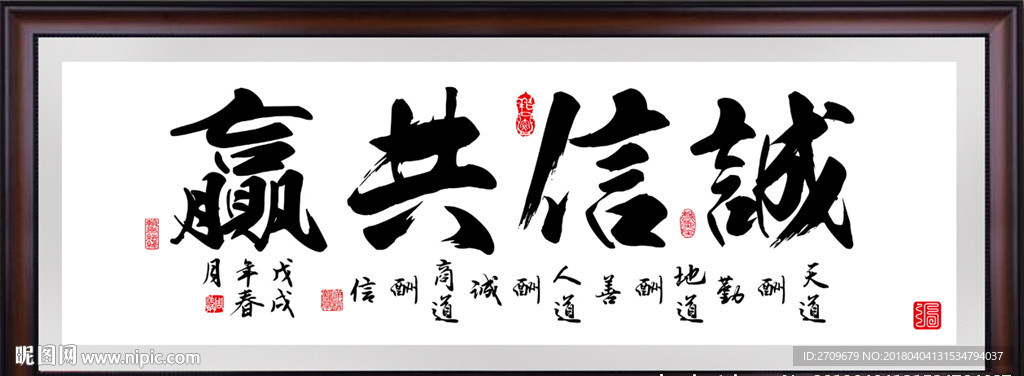 誠信共贏
天道酬勤 地道酬善 人道酬誠 商道酬信
戊戌年春月
昵图网 www.nipic.com
ID:2709679 NO:20180404131534794037